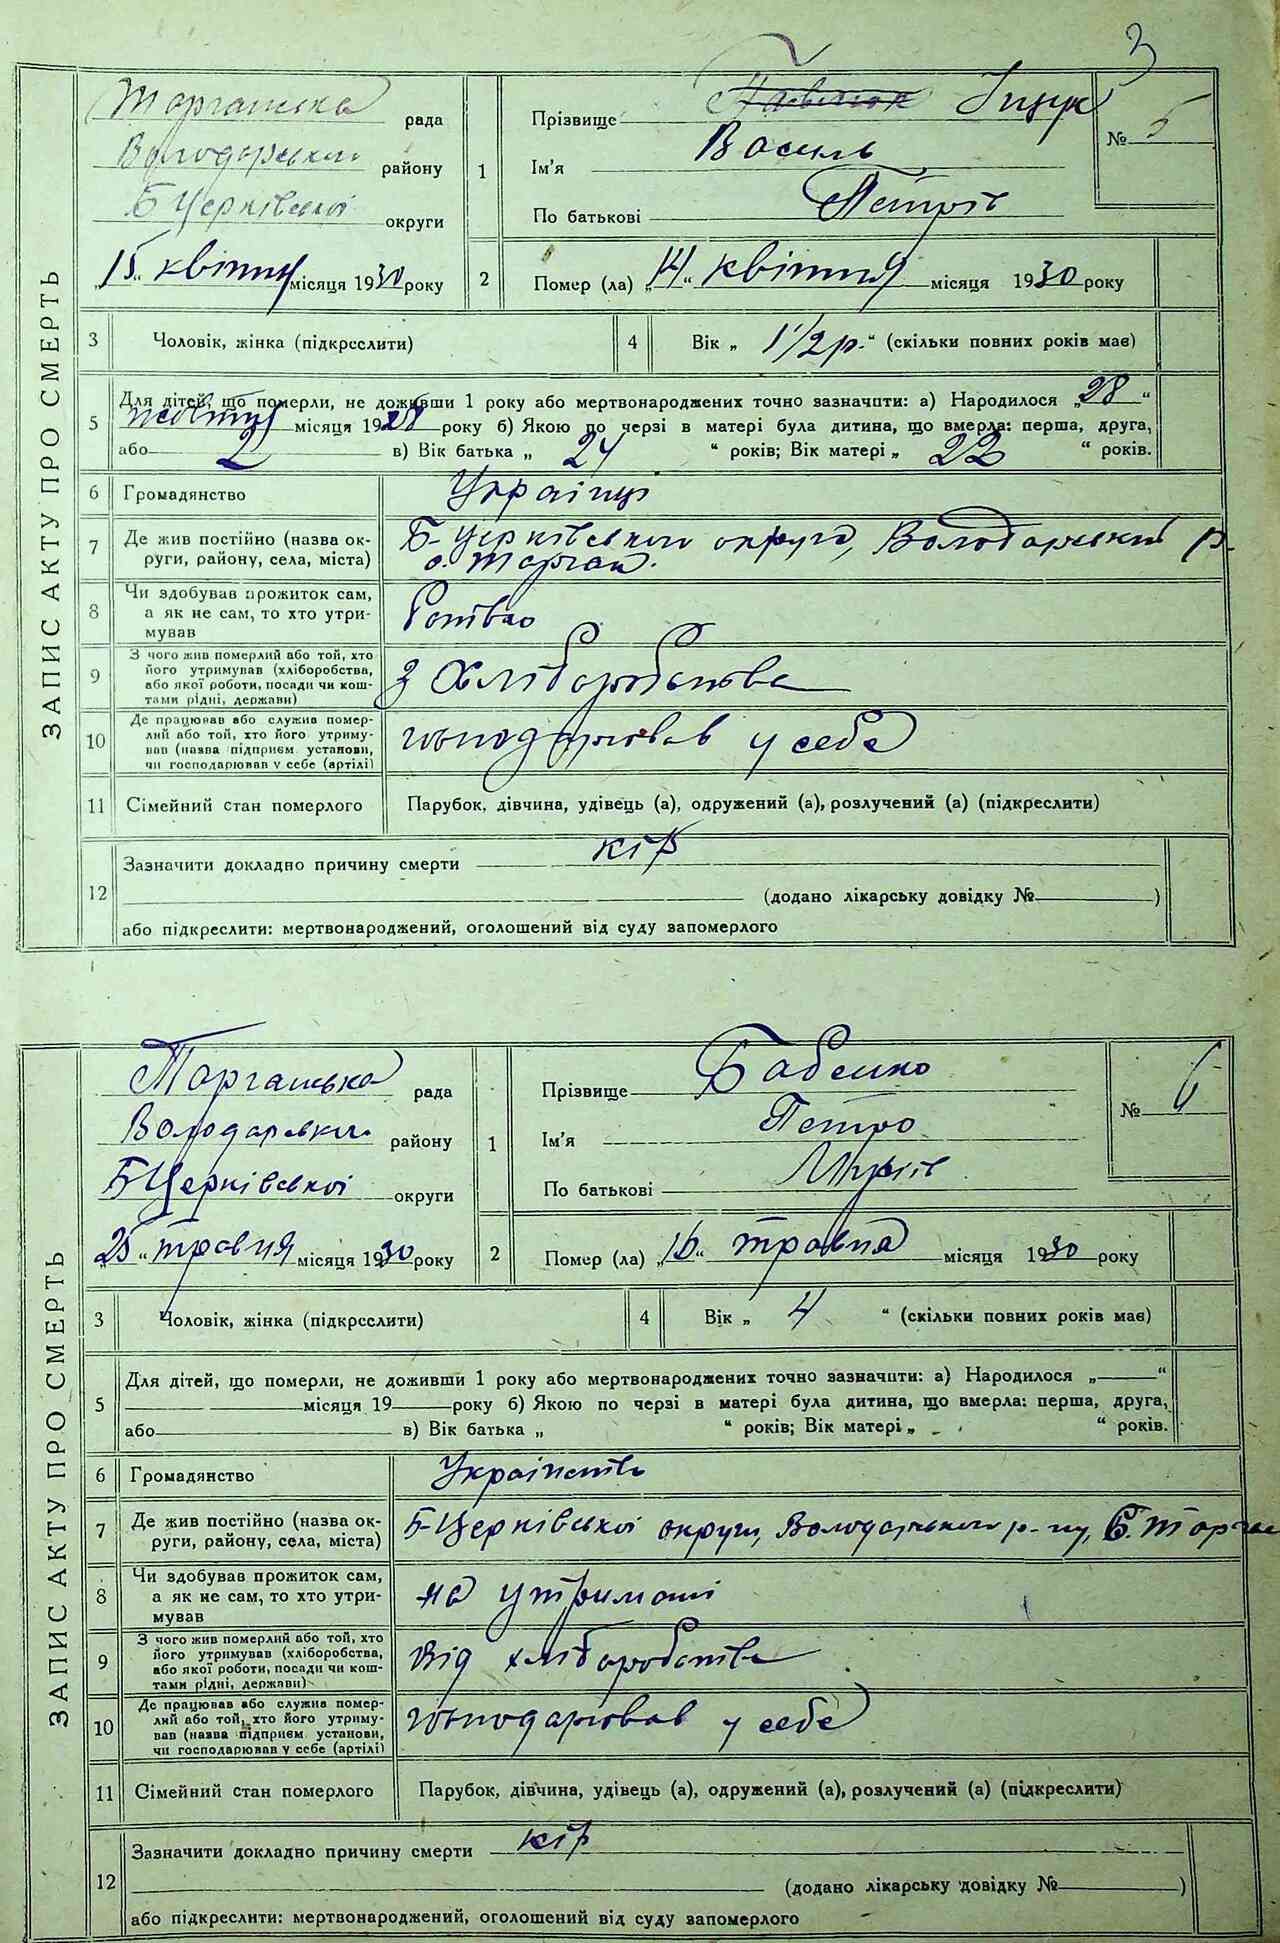 3
ЗАПИС АКТУ ПРО СМЕРТЬ
Торгашська рада
Володарського району
Б Церківської округи
„15“ квітня місяця 1930 року
1
Прізвище Іщук
Ім'я Василь
По батькові Петрів
№ 5
2 Помер (ла) „14“ квітня місяця 1930 року
3 Чоловік, жінка (підкреслити)
4 Вік „ 1 1/2 р. “ (скільки повних років має)
5 Для дітей, що померли, не доживши 1 року або мертвонароджених точно зазначити: а) Народилося „28“
жовтня місяця 1928 року б) Якою по черзі в матері була дитина, що вмерла: перша, друга,
або 2 в) Вік батька „ 24 “ років; Вік матері „ 22 “ років.
6 Громадянство Українці
7 Де жив постійно (назва округи, району, села, міста) Б-Церківського округа, Володарський р-
с. Торган.
8 Чи здобував прожиток сам, а як не сам, то хто утримував
9 З чого жив померлий або той, хто його утримував (хліборобства, або якої роботи, посади чи коштами рідні, держави) З Хліборобства
10 Де працював або служив померлий або той, хто його утримував (назва підприєм. установи, чи господарював у себе (артілі) господарював у себе
11 Сімейний стан померлого Парубок, дівчина, удівець (а), одружений (а), розлучений (а) (підкреслити)
12 Зазначити докладно причину смерти кір
(додано лікарську довідку № )
або підкреслити: мертвонароджений, оголошений від суду запомерлого
ЗАПИС АКТУ ПРО СМЕРТЬ
Торганська рада
Володарського району
Б Церківської округи
„25“ травня місяця 1930 року
1
Прізвище Бабенко
Ім'я Петро
По батькові
№ 6
2 Помер (ла) „16“ травня місяця 1930 року
3 Чоловік, жінка (підкреслити)
4 Вік „ 4 “ (скільки повних років має)
5 Для дітей, що померли, не доживши 1 року або мертвонароджених точно зазначити: а) Народилося „ “
місяця 19 року б) Якою по черзі в матері була дитина, що вмерла: перша, друга,
або в) Вік батька „ “ років; Вік матері „ “ років.
6 Громадянство
7 Де жив постійно (назва округи, району, села, міста) Б-Церківської округи, Володарського р-ну, С. Торган
8 Чи здобував прожиток сам, а як не сам, то хто утримував на утримані
9 З чого жив померлий або той, хто його утримував (хліборобства, або якої роботи, посади чи коштами рідні, держави) Від хліборобства
10 Де працював або служив померлий або той, хто його утримував (назва підприєм. установи, чи господарював у себе (артілі) господарював у себе
11 Сімейний стан померлого Парубок, дівчина, удівець (а), одружений (а), розлучений (а) (підкреслити)
12 Зазначити докладно причину смерти кір
(додано лікарську довідку № )
або підкреслити: мертвонароджений, оголошений від суду запомерлого